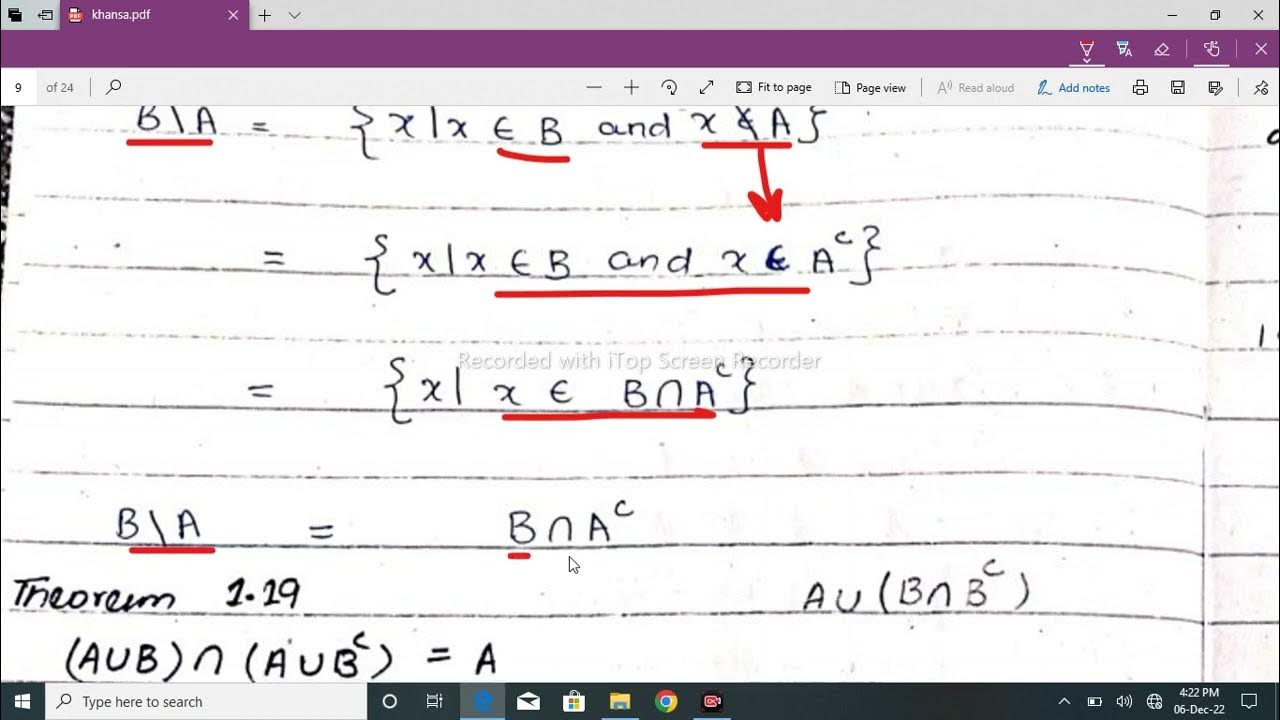 khansa.pdf
9 of 24 Fit to page Page view Read aloud Add notes
B \ A = {x | x ∈ B and x ∉ A}
= {x | x ∈ B and x ∈ Aᶜ}
Recorded with iTop Screen Recorder
= {x | x ∈ B ∩ Aᶜ}
B \ A = B ∩ Aᶜ
Theorem 1.19 A ∪ (B ∩ Bᶜ)
(A ∪ B) ∩ (A ∪ Bᶜ) = A
Type here to search
4:22 PM
06-Dec-22